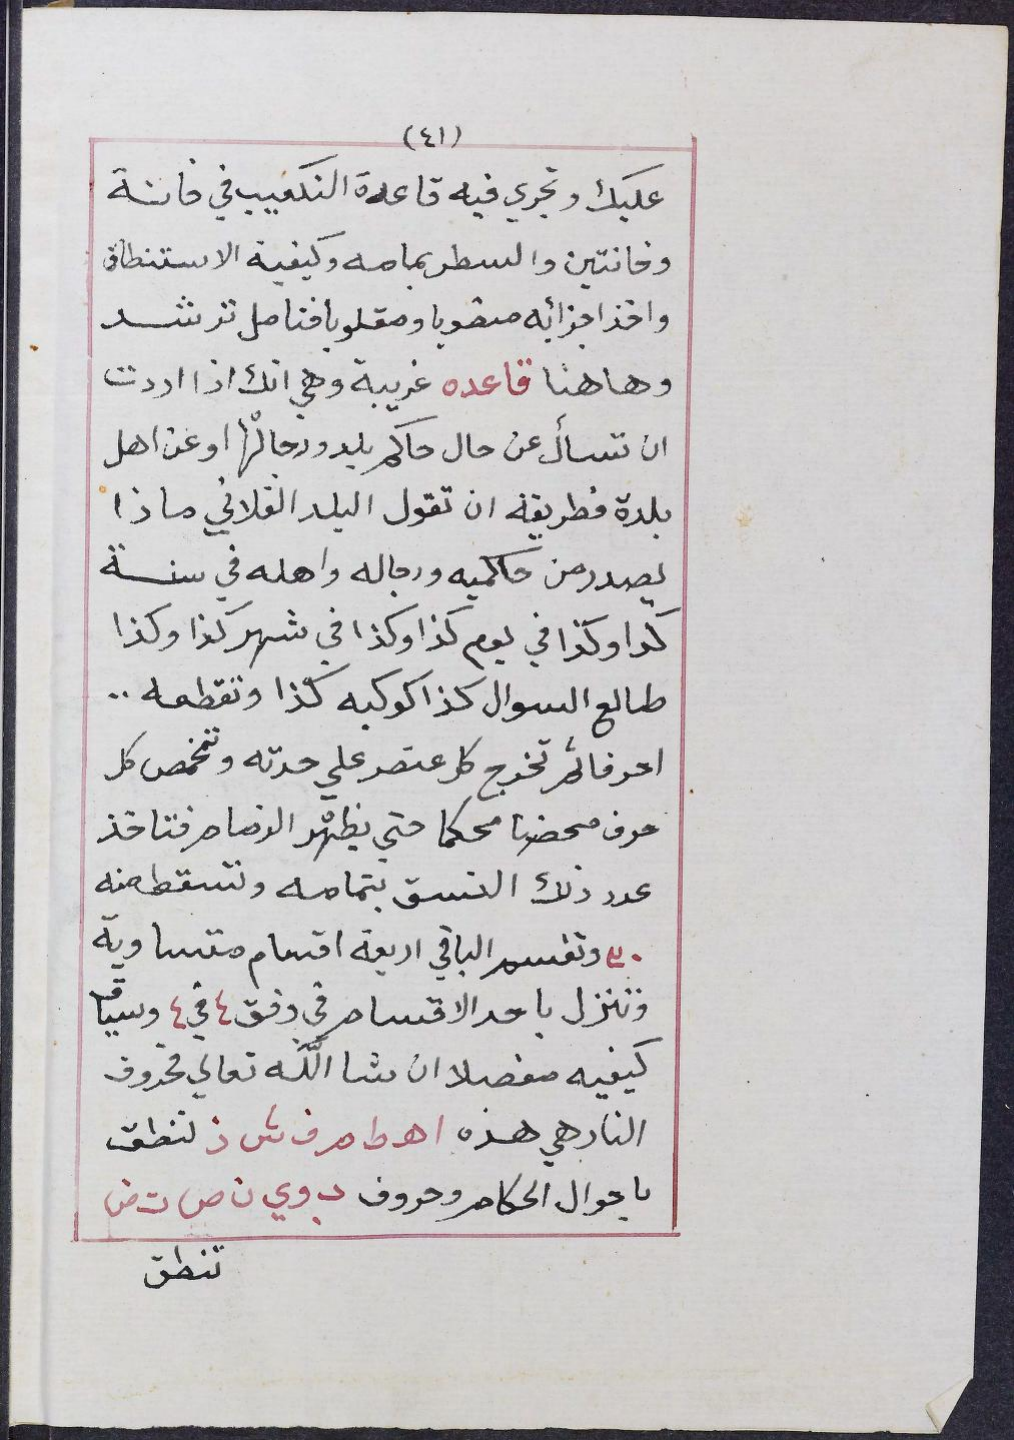 (٤١)
عليك وتجري فيه قاعدة التكعيب في خانة
وخانتين والسطر بمامه وكيفية الاستنطاق
واخذ اجزائه منصوبا ومقلوبا فتامل ترشد
وهاهنا قاعده غريبة وهي انك اذا اردت
ان تسأل عن حال حاكم بلد ورجالها او عن اهل
بلدة فطريقة ان تقول البلد الفلاني ماذا
يصدر من حاكميه ورجاله واهله في سنة
كذا وكذا في يوم كذا وكذا في شهر كذا وكذا
طالع السوال كذا كوكبه كذا وتقطعه ..
احرفا ثم تخرج كل عنصر علي حدته وتمخض كل
حرف محضا محكما حتي يظهر الزمام فتاخذ
عدد ذلك النسق بتمامه وتسقط منه
٣٠ وتقسم الباقي اربعة اقسام متساوية
وتنزل باحد الاقسام في وفق ٤ في ٤ وسياتي
كيفيه مفصلا ان شا اللّه تعالي فحروف
النار هي هذه ا ه ط م ف ش ذ تنطق
باحوال الحكام وحروف ب و ي ن ص ت ض
تنطق